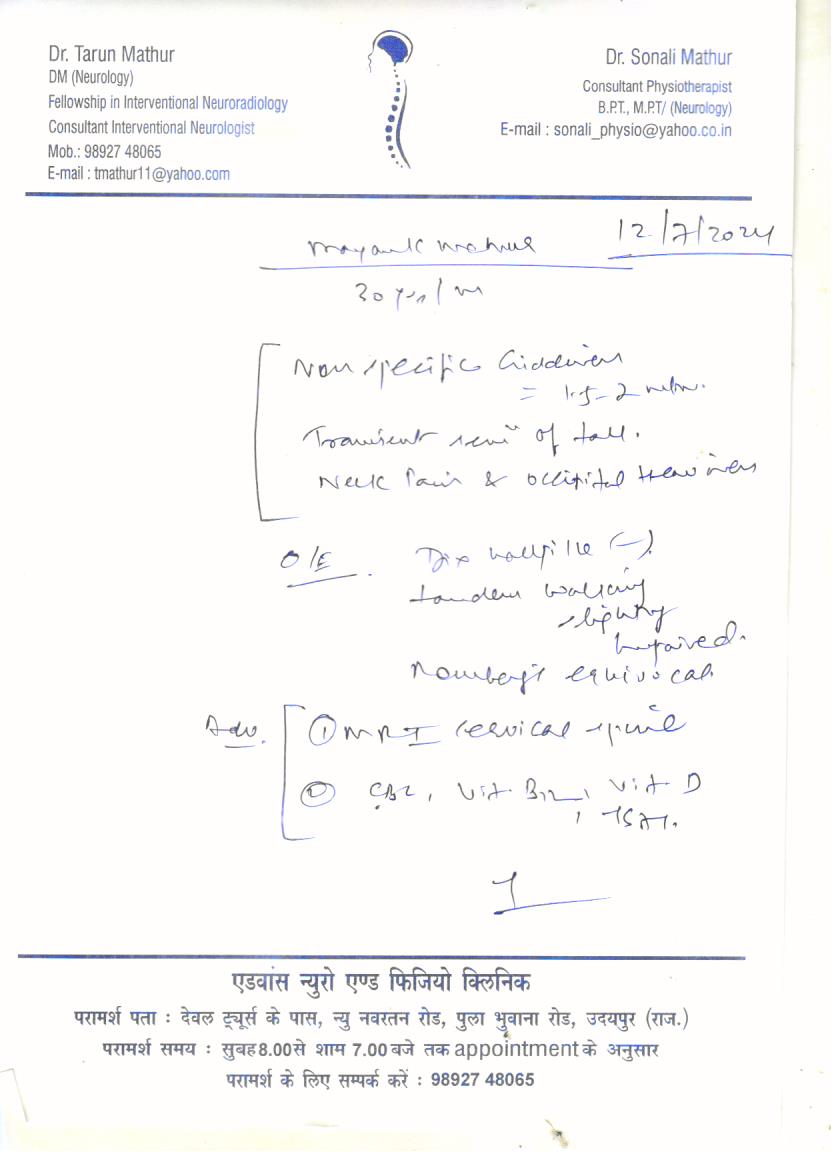 Dr. Tarun Mathur
DM (Neurology)
Fellowship in Interventional Neuroradiology
Consultant Interventional Neurologist
Mob.: 98927 48065
E-mail : tmathur11@yahoo.com
Dr. Sonali Mathur
Consultant Physiotherapist
B.P.T., M.P.T/ (Neurology)
E-mail : sonali_physio@yahoo.co.in
12/7/2024
Mayank
30 yrs/m
Non specific Giddiness
= 1.5-2
Transient of fall.
Neck Pain & occipital Heaviness
O/E. Dix hallpike (-).
tandem walking
slightly
impaired.
Romberg's equivocal
Adv. ① MRI cervical spine
② CBC, Vit B12, Vit D
, TSH.
एडवांस न्युरो एण्ड फिजियो क्लिनिक
परामर्श पता : देवल ट्यूर्स के पास, न्यु नवरतन रोड, पुला भुवाना रोड, उदयपुर (राज.)
परामर्श समय : सुबह 8.00 से शाम 7.00 बजे तक appointment के अनुसार
परामर्श के लिए सम्पर्क करें : 98927 48065